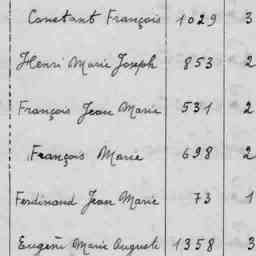 Constant François 1029 3
Henri Marie Joseph 853 2
François Jean Marie 531 2
François Marie 698 2
Ferdinand Jean Marie 73 1
Eugène Marie Auguste 1358 3